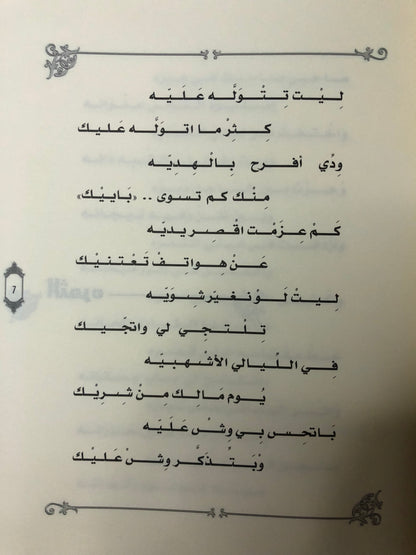 لِـيْـت تِـتْـوَلَّـه عَـلَـيَّـه
كِـثِـرْ مـا اتـوَلَّـه عـلـيـك
وِدِّي أفـرح بِـالْـهِـديَّـه
مِـنْـك كـم تـسـوى .. «بَـايـيْـك»
كَـمْ عِـزَمْـت اقْـصِـر يـديَّـه
عَـنْ هـواتـفْ تَـعْـتـنـيْـك
لِـيـتْ لَـوْ نـغـيَـر شـويَـه
تِـلْـتـجـي لـي واتـجـيـك
فِـي الـلـيـالـي الأشْـهـبـيّـه
يُـوم مـالـك مِـنْ شـريْـك
بَـاتـحـس بـي وِش عَـلَـيَّـه
وْبَـتْـذكَّـر وِشْ عَـلـيْـك
7